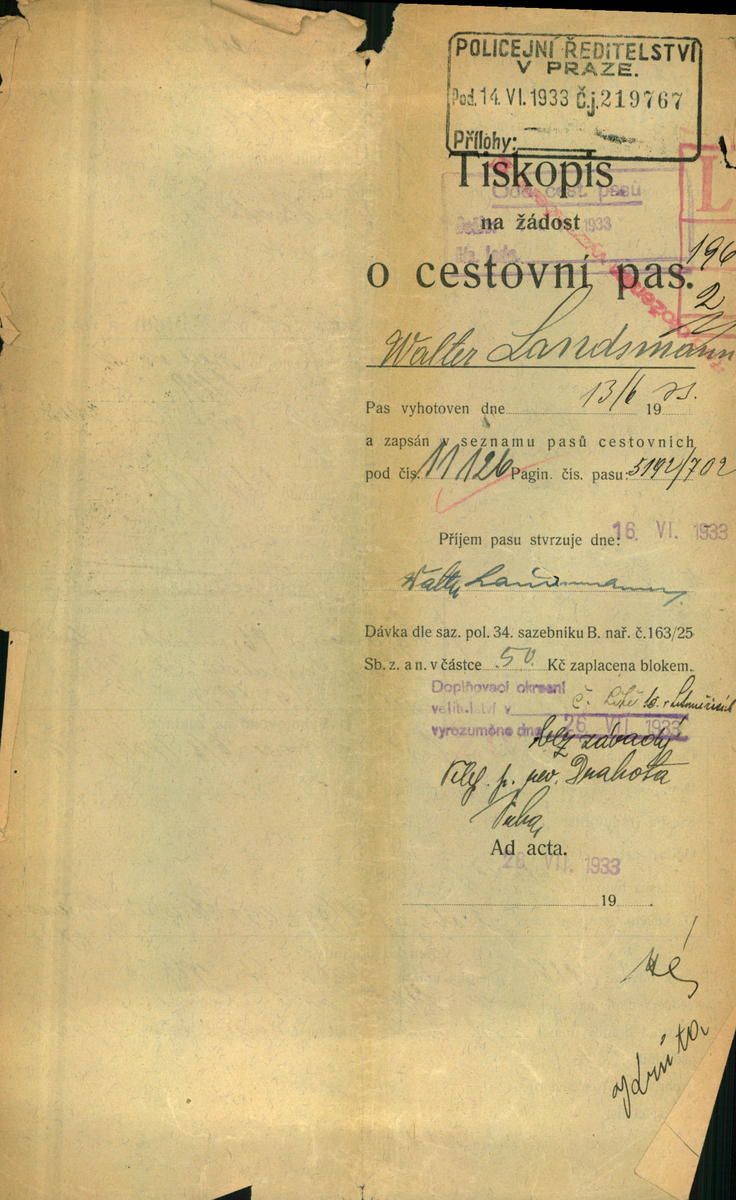 POLICEJNÍ ŘEDITELSTVÍ
V PRAZE.
Pod. 14. VI. 1933 Č.j. 219767
Přílohy:
Tiskopis
Odd. cest. pasů
na žádost
1933
o cestovní pas.
196
2
Walter Landsmann
Pas vyhotoven dne 13/6 19
a zapsán v seznamu pasů cestovních
pod čís. 11126 Pagin. čís. pasu: 5192/702
Příjem pasu stvrzuje dne: 16. VI. 1933
Walter Landsmann
Dávka dle saz. pol. 34. sazebníku B. nař. č. 163/25
Sb. z. a n. v částce 50 Kč zaplacena blokem.
Doplňovací okresní
velitelství v
vyrozuměno dne 26 VII. 1933
bez závady
Drahota
Ad acta.
26 VII. 1933
19